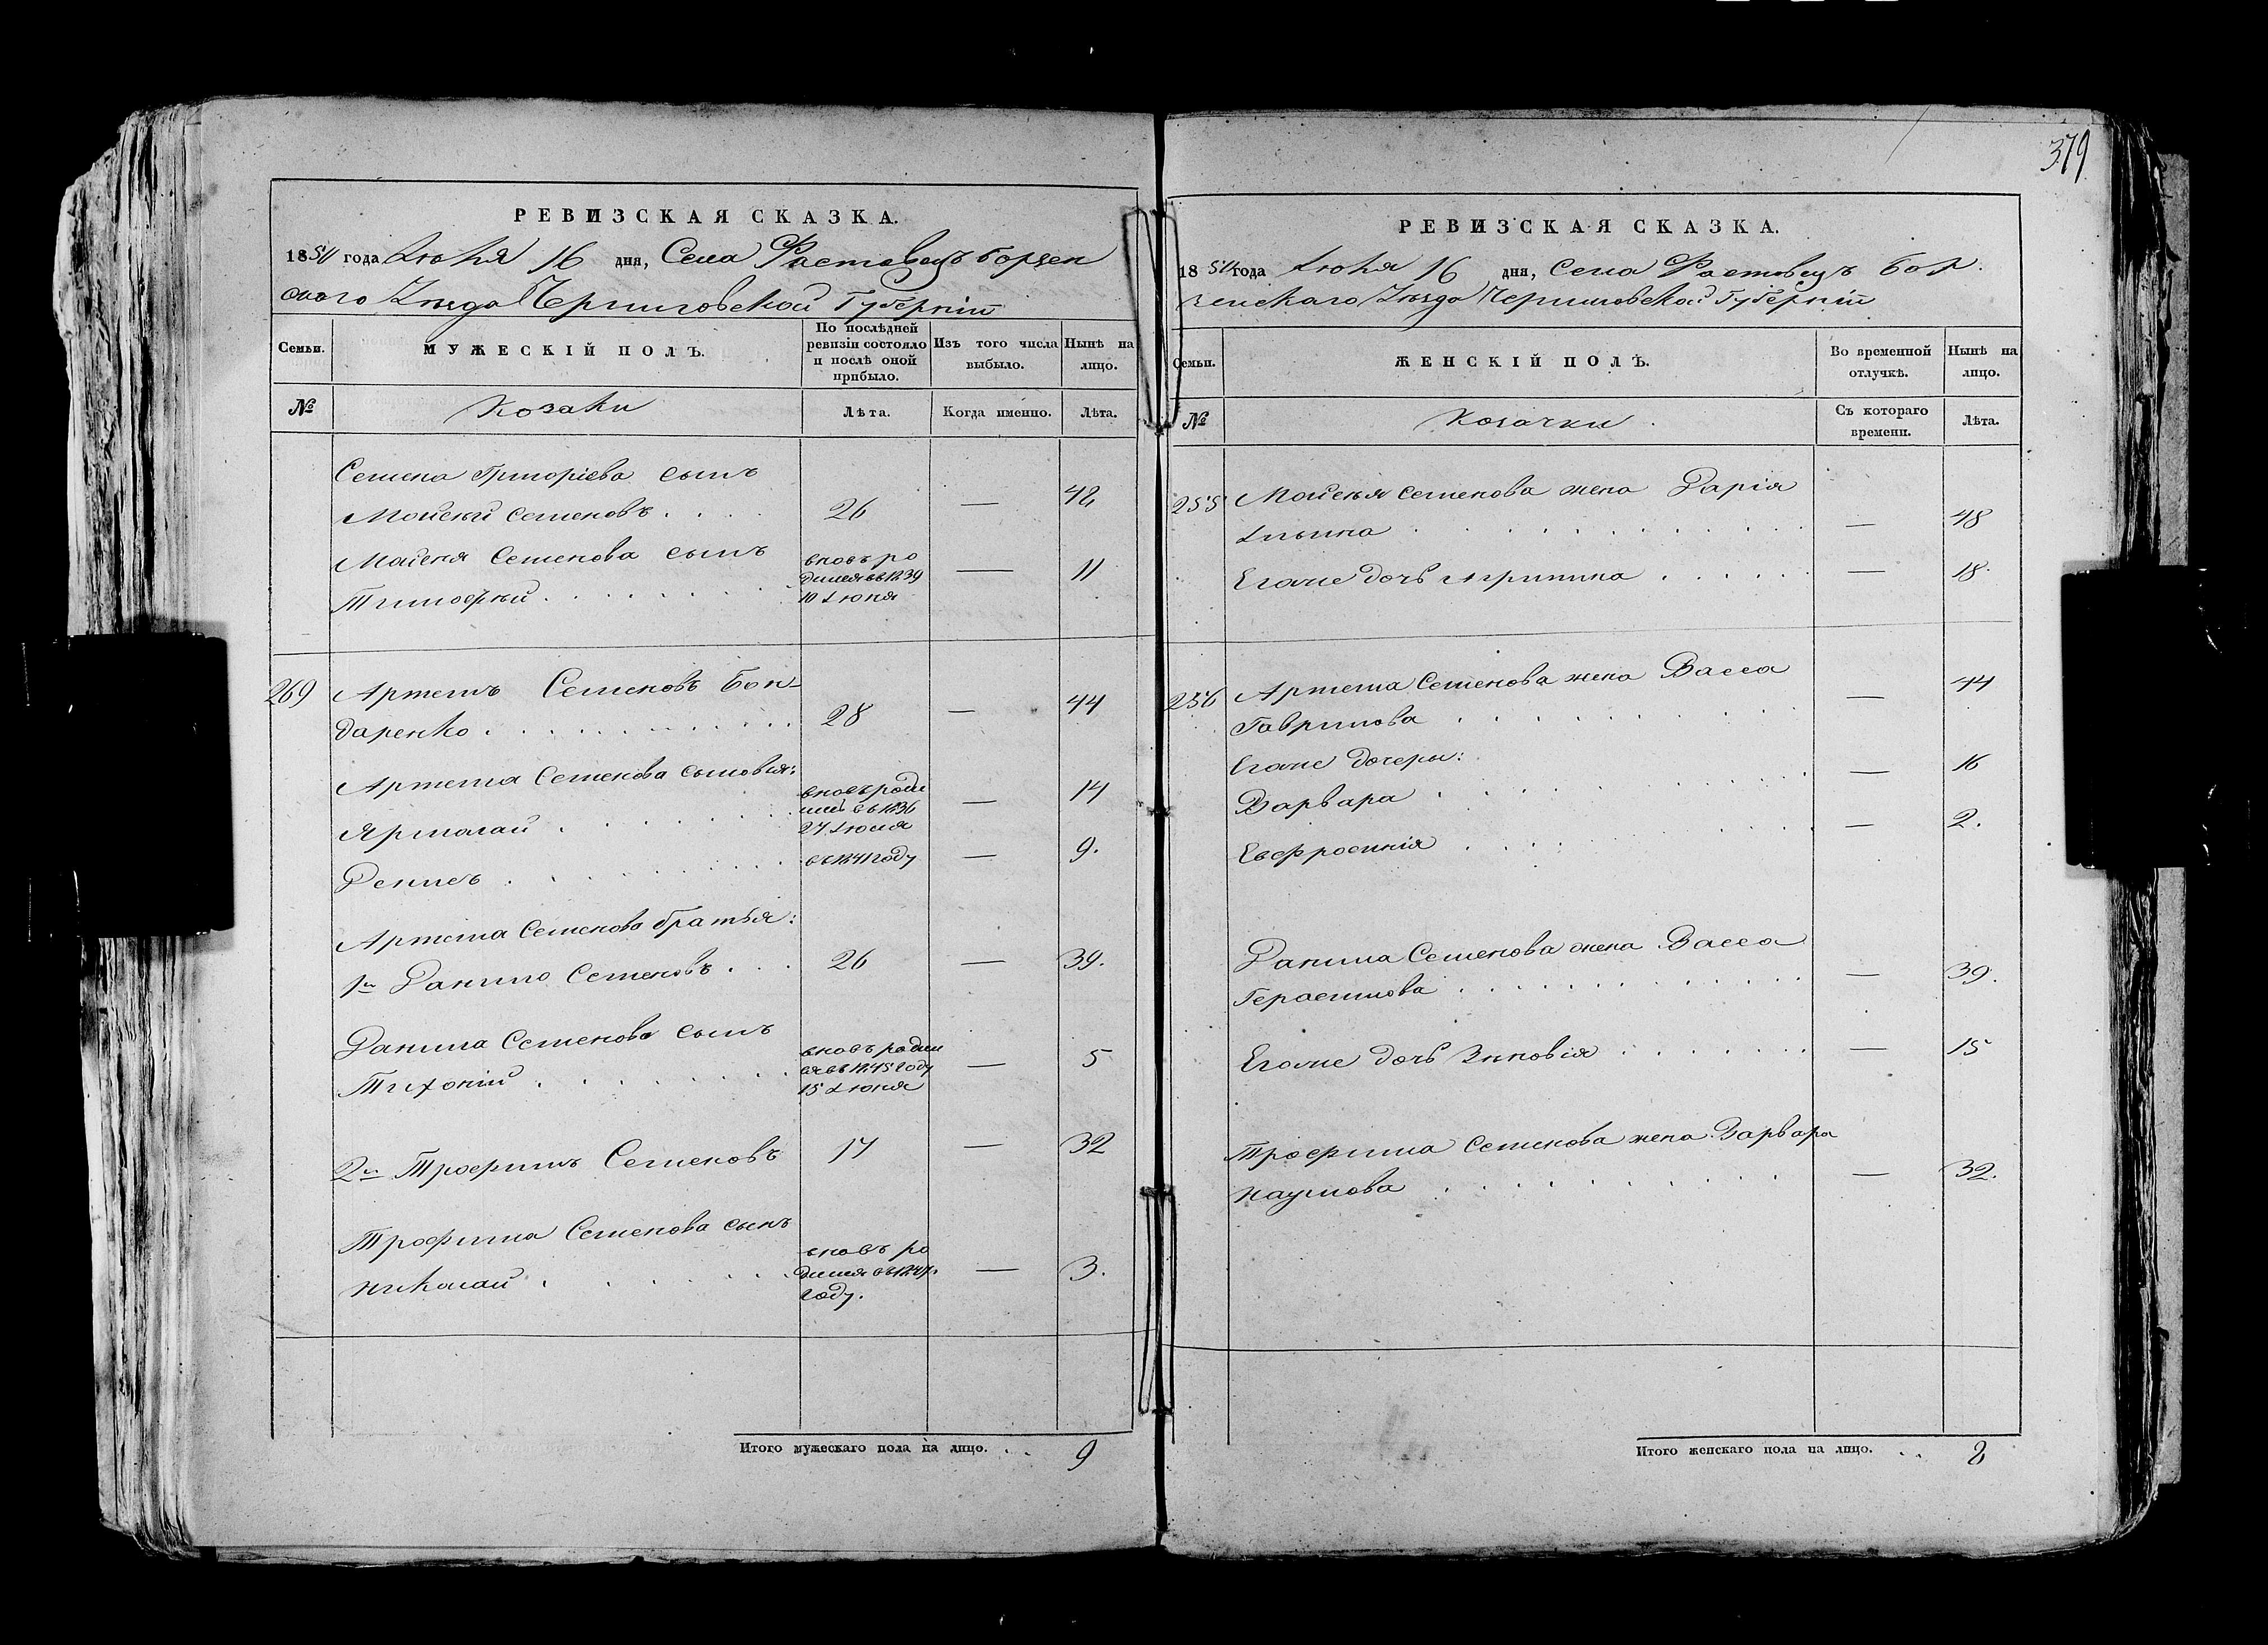 РЕВИЗСКАЯ СКАЗКА.
1850 года Іюня 16 дня, Села Фастовецъ Борзен
скаго Уѣзда Черниговской Губерніи
Семьи.
МУЖЕСКІЙ ПОЛЪ.
По послѣдней
ревизіи состояло
и послѣ оной
прибыло.
Изъ того числа
выбыло.
Нынѣ на
лицо.
№
Козаки
Лѣта.
Когда именно.
Лѣта.
Семена Григоріева сынъ
Мойсей Семеновъ . . . . 26 — 42
Мойсея Семенова сынъ
Тимофѣй . . . . . . вновь ро
дился въ 1839
10 Іюня — 11
269 Артемъ Семеновъ Бон-
даренко . . . . . . 28 — 44
Артема Семенова сыновья:
Ермолай . . . . . . вновь роди
лись въ 1836
27 Іюня — 14
Денисъ . . . . . . въ 1841 году — 9.
Артема Семенова братья:
1й Данило Семеновъ . . . 26 — 39.
Данила Семенова сынъ
Тихоній . . . . . . вновь родил
ся въ 1845 году
15 Іюня — 5
2й Трофимъ Семеновъ 17 — 32
Трофима Семенова сынъ
Николай . . . . . . вновь ро
дился въ 1847
году. — 3.
Итого мужескаго пола на лицо. . . 9
379
РЕВИЗСКАЯ СКАЗКА.
1850 года Іюня 16 дня, Села Фастовецъ Бор
зенскаго Уѣзда Черниговской Губерніи
Семьи.
ЖЕНСКІЙ ПОЛЪ.
Во временной
отлучкѣ.
Нынѣ на
лицо.
№
Козачки
Съ котораго
времени.
Лѣта.
255 Мойсея Семенова жена Дарія
Ильина . . . . . . — 48
Егоже дочь Агрипина . . . . . — 18.
256 Артема Семенова жена Васса
Гаврилова . . . . . . — 44
Егоже дочери:
Варвара . . . . . . — 16
Евфросинія . . . . . . — 2.
Данила Семенова жена Васса
Герасимова . . . . . . — 39.
Егоже дочь Зиновія . . . . . . — 15
Трофима Семенова жена Варвара
Наумова . . . . . . — 32.
Итого женскаго пола на лицо. . . 8